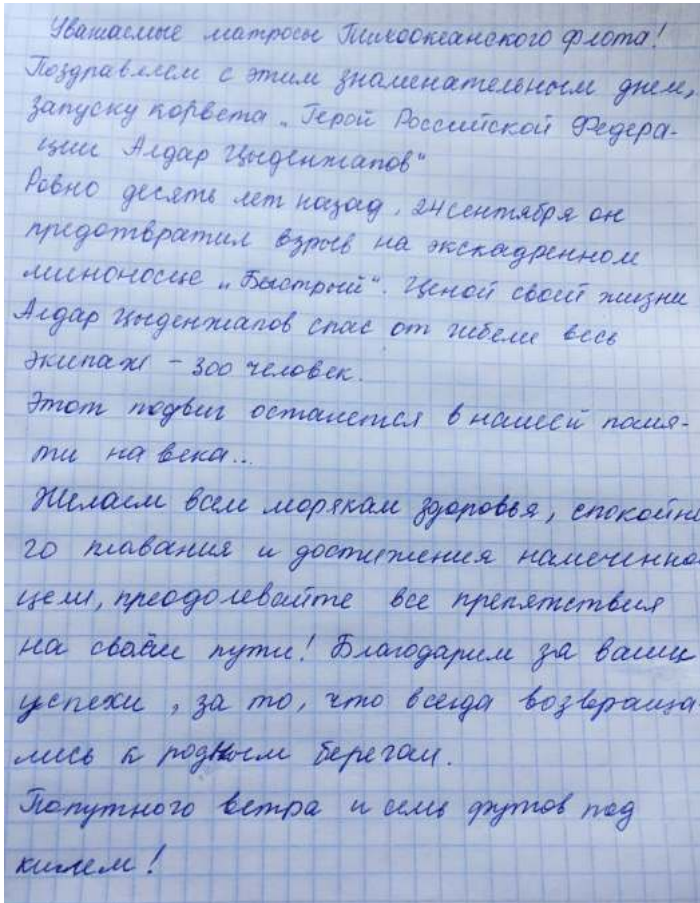 Уважаемые матросы Тихоокеанского флота!
Поздравляем с этим знаменательным днем,
запуску корвета „Герой Российской Федера-
ции Алдар Цыденжапов“
Ровно десять лет назад, 24 сентября он
предотвратил взрыв на экскадренном
миноносце „Быстрый“. Ценой своей жизни
Алдар Цыденжапов спас от гибели весь
экипаж – 300 человек.
Этот подвиг останется в нашей памя-
ти на века...
Желаем всем морякам здоровья, спокойно
го плавания и достижения намеченно
цели, преодолевайте все препятствия
на своём пути! Благодарим за ваши
успехи, за то, что всегда возвраща-
лись к родным берегам.
Попутного ветра и семь футов под
килем!